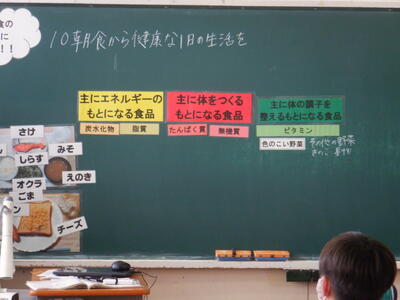 食の
に
!!
10朝食から健康な1日の生活を
主にエネルギーの
もとになる食品
炭水化物 脂質
主に体をつくる
もとになる食品
たんぱく質 無機質
主に体の調子を
整えるもとになる食品
ビタミン
色のこい野菜
その他の野菜
きのこ 果物
さけ
しらす
みそ
オクラ
ごま
えのき
ン
チーズ